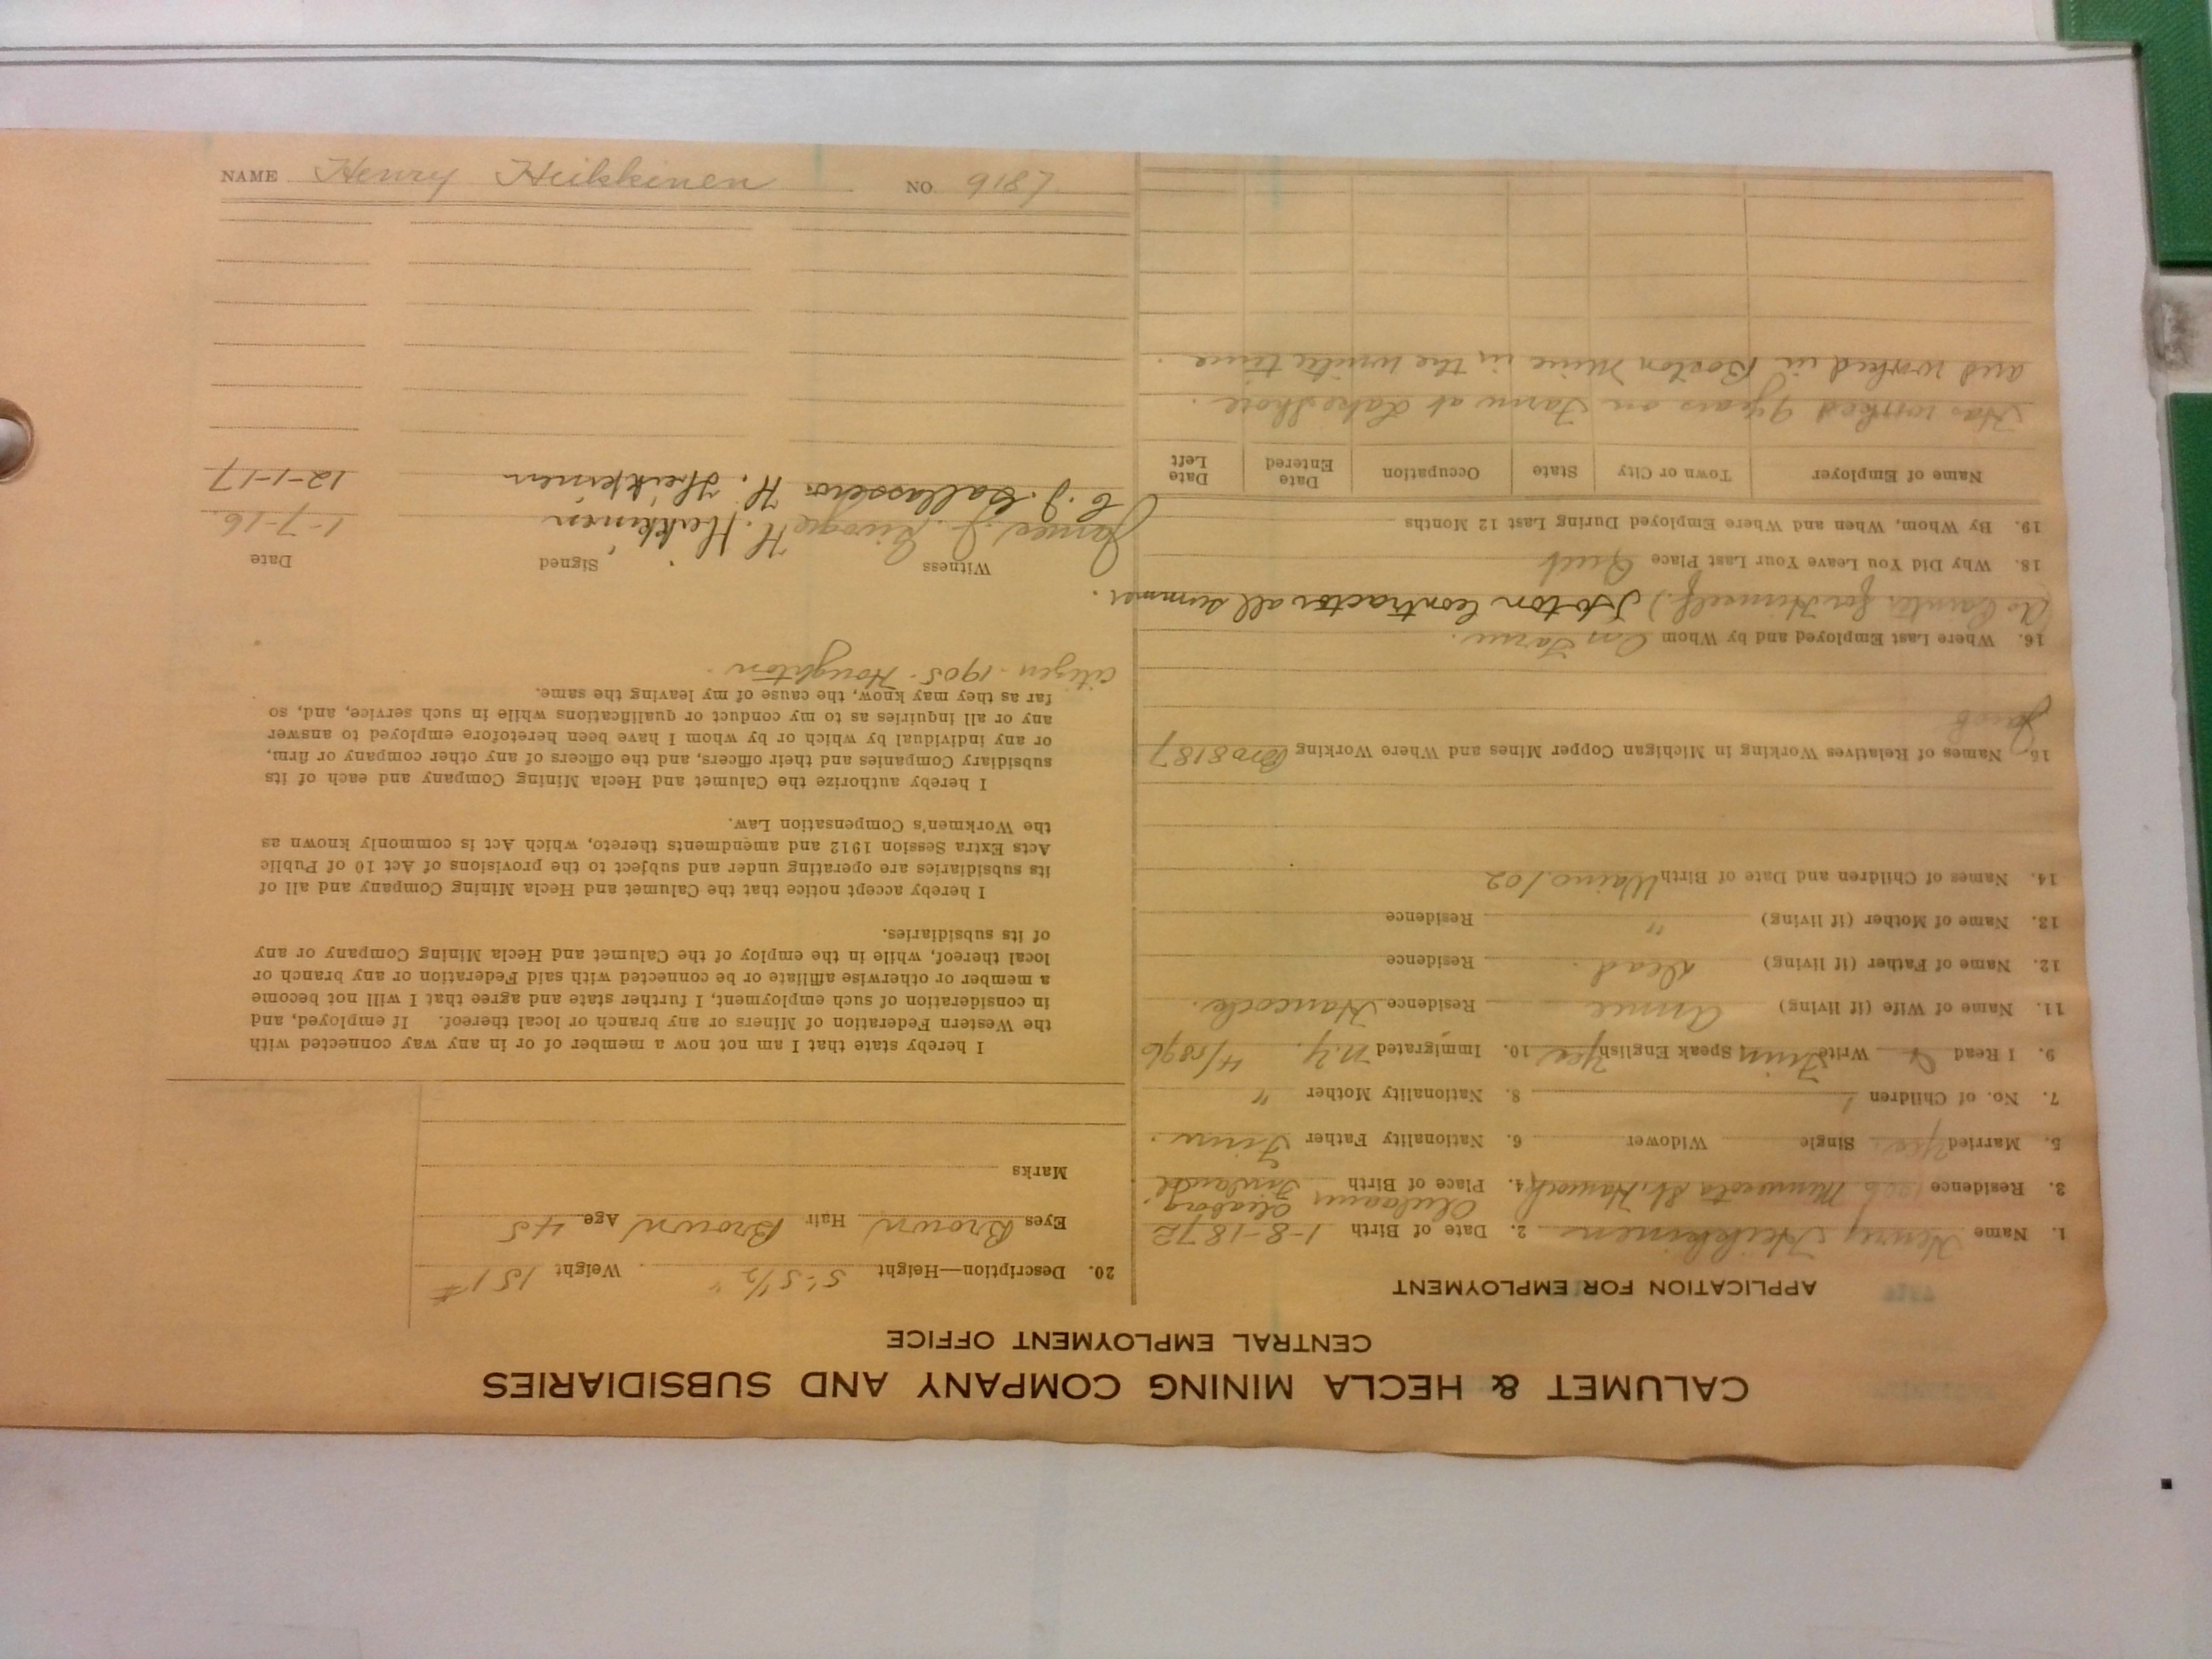 CALUMET & HECLA MINING COMPANY AND SUBSIDIARIES
CENTRAL EMPLOYMENT OFFICE
APPLICATION FOR EMPLOYMENT
1. Name Henry Heikkinen 2. Date of Birth 1-8-1872
3. Residence Minnesota St. Hancock 4. Place of Birth Finland
5. Married Yes Single Widower 6. Nationality Father Finn.
7. No. of Children 1 8. Nationality Mother "
9. I Read & Write Finn Speak English Yes 10. Immigrated N.Y. 4/1896
11. Name of Wife (if living) Residence Hancock.
12. Name of Father (if living) Dead. Residence
13. Name of Mother (if living) " Residence
14. Names of Children and Date of Birth Waino /02
15. Names of Relatives Working in Michigan Copper Mines and Where Working Bro 8187
Jacob
16. Where Last Employed and by Whom On Farm.
for Himself.) Contractor all summer.
18. Why Did You Leave Your Last Place Quit
19. By Whom, When and Where Employed During Last 12 Months
Name of Employer Town or City State Occupation Date Entered Date Left
Has worked 9 years on Farm at Lakeshore.
and worked in Boston Mine in the winter time.
20. Description—Height 5'-5 1/2" Weight 151#
Eyes Brown Hair Brown Age 45
Marks
I hereby state that I am not now a member of or in any way connected with
the Western Federation of Miners or any branch or local thereof. If employed, and
in consideration of such employment, I further state and agree that I will not become
a member or otherwise affiliate or be connected with said Federation or any branch or
local thereof, while in the employ of the Calumet and Hecla Mining Company or any
of its subsidiaries.
I hereby accept notice that the Calumet and Hecla Mining Company and all of
its subsidiaries are operating under and subject to the provisions of Act 10 of Public
Acts Extra Session 1912 and amendments thereto, which Act is commonly known as
the Workmen's Compensation Law.
I hereby authorize the Calumet and Hecla Mining Company and each of its
subsidiary Companies and their officers, and the officers of any other company or firm,
or any individual by which or by whom I have been heretofore employed to answer
any or all inquiries as to my conduct or qualifications while in such service, and, so
far as they may know, the cause of my leaving the same.
Citizen - 1905 - Houghton.
Witness Signed Date
James J. H. Heikkinen 1-7-16
C. J. H. Heikkinen 12-1-17
NAME Henry Heikkinen NO. 9187